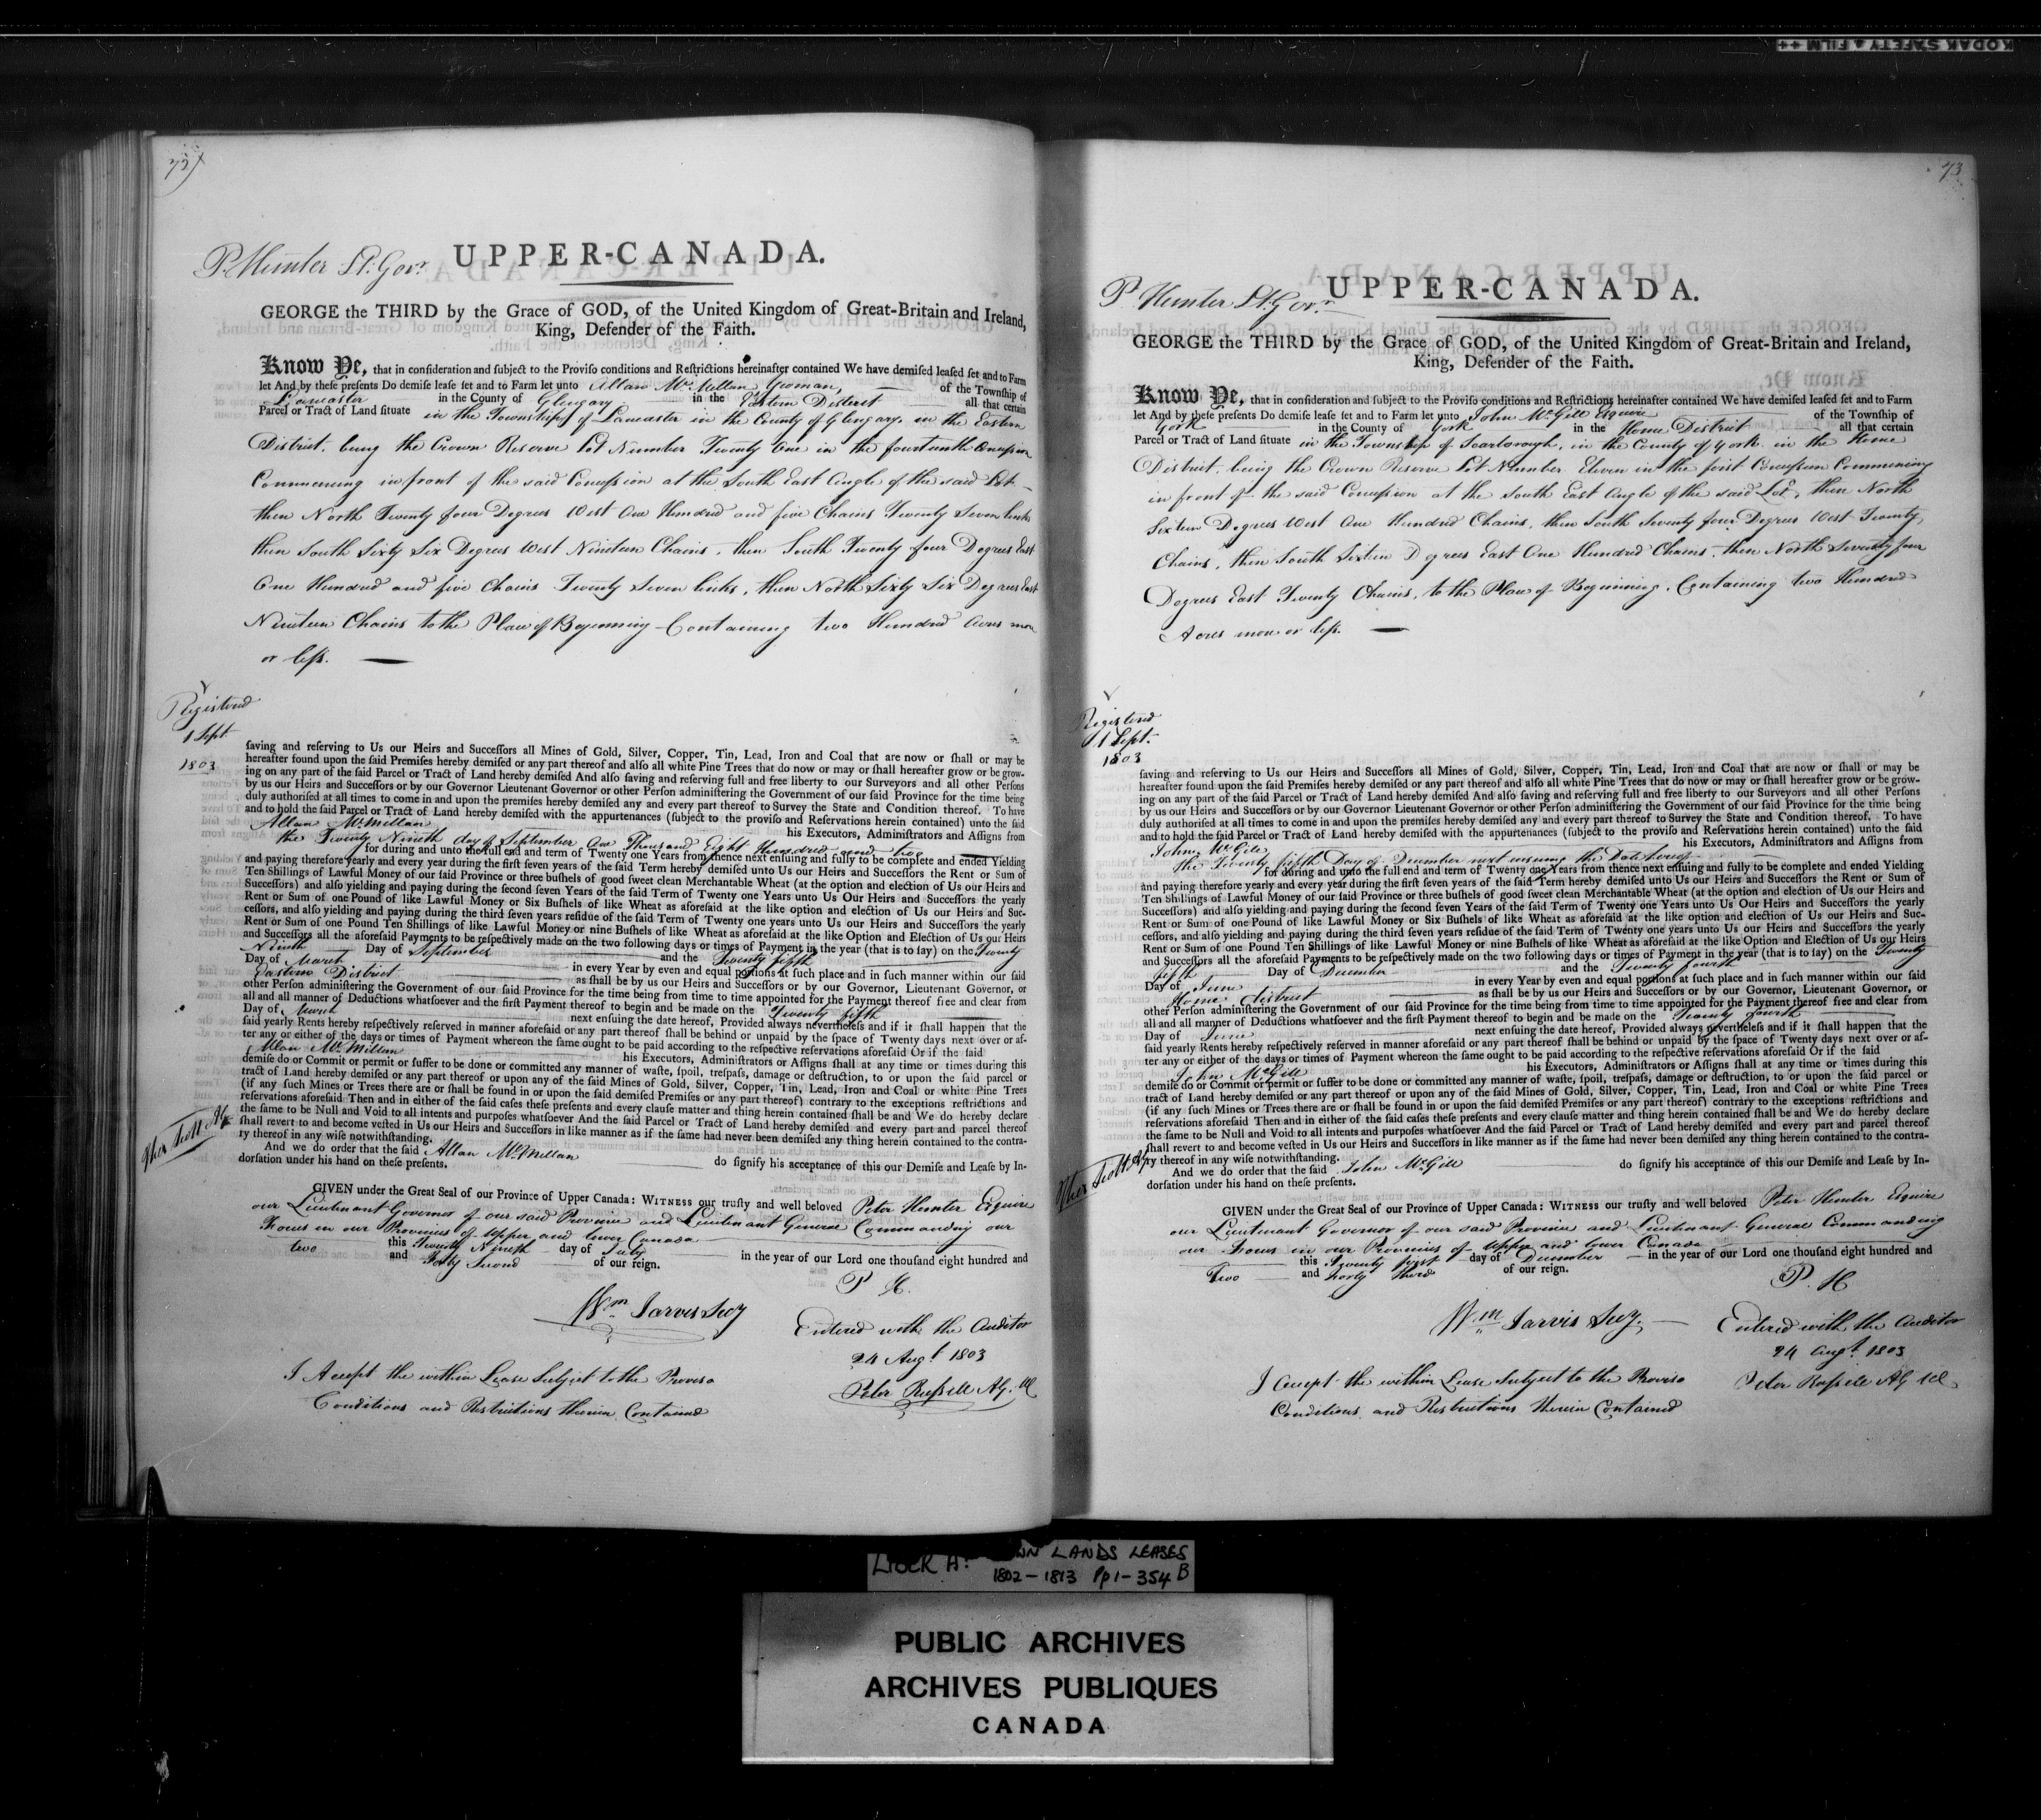 KODAK SAFETY FILM ++
72
P. Hunter Lt. Govr.
UPPER-CANADA.
GEORGE the THIRD by the Grace of GOD, of the United Kingdom of Great-Britain and Ireland,
King, Defender of the Faith.
Know Ye, that in conſideration and ſubject to the Proviſo conditions and Reſtrictions hereinafter contained We have demiſed leaſed ſet and to Farm
let And by theſe preſents Do demiſe leaſe ſet and to Farm let unto Allan McMillan Yeoman, of the Townſhip of
Lancaster in the County of Glengary in the Eastern District all that certain
Parcel or Tract of Land ſituate in the Township of Lancaster in the County of Glengary, in the Eastern
District, being the Crown Reserve Lot Number Twenty One in the fourteenth Concession
Commencing in front of the said Concession at the South East Angle of the said Lot
then North Twenty four Degrees West One Hundred and five Chains Twenty Seven links
then South Sixty Six Degrees West Nineteen Chains, then South Twenty four Degrees East
One Hundred and five Chains Twenty Seven links, then North Sixty Six Degrees East
Nineteen Chains to the Place of Beginning Containing two Hundred Acres more
or less.
Registered
1 Sept.
1803
ſaving and reſerving to Us our Heirs and Succeſſors all Mines of Gold, Silver, Copper, Tin, Lead, Iron and Coal that are now or ſhall or may be
hereafter found upon the ſaid Premiſes hereby demiſed or any part thereof and alſo all white Pine Trees that do now or may or ſhall hereafter grow or be grow-
ing on any part of the ſaid Parcel or Tract of Land hereby demiſed And alſo ſaving and reſerving full and free liberty to our Surveyors and all other Perſons
by us our Heirs and Succeſſors or by our Governor Lieutenant Governor or other Perſon adminiſtering the Government of our ſaid Province for the time being
duly authoriſed at all times to come in and upon the premiſes hereby demiſed any and every part thereof to Survey the State and Condition thereof. To have
and to hold the ſaid Parcel or Tract of Land hereby demiſed with the appurtenances (ſubject to the proviſo and Reſervations herein contained) unto the ſaid
Allan McMillan his Executors, Adminiſtrators and Aſſigns from
the Twenty Nineth day of September One Thousand Eight Hundred and two
for during and unto the full end and term of Twenty one Years from thence next enſuing and fully to be complete and ended Yielding
and paying therefore yearly and every year during the firſt ſeven years of the ſaid Term hereby demiſed unto Us our Heirs and Succeſſors the Rent or Sum of
Ten Shillings of Lawful Money of our ſaid Province or three buſhels of good ſweet clean Merchantable Wheat (at the option and election of Us our Heirs and
Succeſſors) and alſo yielding and paying during the ſecond ſeven Years of the ſaid Term of Twenty one Years unto Us Our Heirs and Succeſſors the yearly
Rent or Sum of one Pound of like Lawful Money or Six Buſhels of like Wheat as aforeſaid at the like option and election of Us our Heirs and Suc-
ceſſors, and alſo yielding and paying during the third ſeven years reſidue of the ſaid Term of Twenty one years unto Us our Heirs and Succeſſors the yearly
Rent or Sum of one Pound Ten Shillings of like Lawful Money or nine Buſhels of like Wheat as aforeſaid at the like Option and Election of Us our Heirs
and Succeſſors all the aforeſaid Payments to be reſpectively made on the two following days or times of Payment in the year (that is to ſay) on the Twenty
Nineth Day of September and the Twenty fifth
Day of March in every Year by even and equal portions at ſuch place and in ſuch manner within our ſaid
Eastern District as ſhall be by us our Heirs and Succeſſors or by our Governor, Lieutenant Governor, or
other Perſon adminiſtering the Government of our ſaid Province for the time being from time to time appointed for the Payment thereof free and clear from
all and all manner of Deductions whatſoever and the firſt Payment thereof to begin and be made on the Twenty fifth
Day of March next enſuing the date hereof, Provided always nevertheleſs and if it ſhall happen that the
ſaid yearly Rents hereby reſpectively reſerved in manner aforeſaid or any part thereof ſhall be behind or unpaid by the ſpace of Twenty days next over or af-
ter any or either of the days or times of Payment whereon the ſame ought to be paid according to the reſpective reſervations aforeſaid Or if the ſaid
Allan McMillan his Executors, Adminiſtrators or Aſſigns ſhall at any time or times during this
demiſe do or Commit or permit or ſuffer to be done or committed any manner of waſte, ſpoil, treſpaſs, damage or deſtruction, to or upon the ſaid parcel or
tract of Land hereby demiſed or any part thereof or upon any of the ſaid Mines of Gold, Silver, Copper, Tin, Lead, Iron and Coal or white Pine Trees
(if any ſuch Mines or Trees there are or ſhall be found in or upon the ſaid demiſed Premiſes or any part thereof) contrary to the exceptions reſtrictions and
reſervations aforeſaid Then and in either of the ſaid caſes theſe preſents and every clauſe matter and thing herein contained ſhall be and We do hereby declare
the ſame to be Null and Void to all intents and purpoſes whatſoever And the ſaid Parcel or Tract of Land hereby demiſed and every part and parcel thereof
ſhall revert to and become veſted in Us our Heirs and Succeſſors in like manner as if the ſame had never been demiſed any thing herein contained to the contra-
ry thereof in any wiſe notwithſtanding.
Thos Scott Ay
And we do order that the ſaid Allan McMillan do ſignify his acceptance of this our Demiſe and Leaſe by In-
dorſation under his hand on theſe preſents.
GIVEN under the Great Seal of our Province of Upper Canada: WITNESS our truſty and well beloved Peter Hunter Esquire
our Lieutenant Governor of our said Province and Lieutenant General Commanding our
Forces in our Provinces of Upper and lower Canada
this Twenty Nineth day of July in the year of our Lord one thouſand eight hundred and
two and Forty Second of our reign.
P. H.
Wm Jarvis Secy
Entered with the Auditor
24 Augt. 1803
Peter Russell
I Accept the within Lease Subject to the Proviso
Conditions and Restrictions therein Contained
73
P Hunter Lt. Govr.
UPPER-CANADA.
GEORGE the THIRD by the Grace of GOD, of the United Kingdom of Great-Britain and Ireland,
King, Defender of the Faith.
Know Ye, that in conſideration and ſubject to the Proviſo conditions and Reſtrictions hereinafter contained We have demiſed leaſed ſet and to Farm
let And by theſe preſents Do demiſe leaſe ſet and to Farm let unto John McGill Esquire of the Townſhip of
York in the County of York in the Home District all that certain
Parcel or Tract of Land ſituate in the Township of Scarborough, in the County of York in the Home
District, being the Crown Reserve Lot Number Eleven in the first Concession Commencing
in front of the said Concession at the South East Angle of the said Lot, then North
Sixteen Degrees West One Hundred Chains, then South Seventy four Degrees West Twenty
Chains, then South Sixteen Degrees East One Hundred Chains, then North Seventy four
Degrees East Twenty Chains, to the Place of Beginning, Containing two Hundred
Acres more or less.
Registered
1 Sept.
1803
ſaving and reſerving to Us our Heirs and Succeſſors all Mines of Gold, Silver, Copper, Tin, Lead, Iron and Coal that are now or ſhall or may be
hereafter found upon the ſaid Premiſes hereby demiſed or any part thereof and alſo all white Pine Trees that do now or may or ſhall hereafter grow or be grow-
ing on any part of the ſaid Parcel or Tract of Land hereby demiſed And alſo ſaving and reſerving full and free liberty to our Surveyors and all other Perſons
by us our Heirs and Succeſſors or by our Governor Lieutenant Governor or other Perſon adminiſtering the Government of our ſaid Province for the time being
duly authoriſed at all times to come in and upon the premiſes hereby demiſed any and every part thereof to Survey the State and Condition thereof. To have
and to hold the ſaid Parcel or Tract of Land hereby demiſed with the appurtenances (ſubject to the proviſo and Reſervations herein contained) unto the ſaid
John McGill his Executors, Adminiſtrators and Aſſigns from
the Twenty fifth Day of December next ensuing the Date hereof
for during and unto the full end and term of Twenty one Years from thence next enſuing and fully to be complete and ended Yielding
and paying therefore yearly and every year during the firſt ſeven years of the ſaid Term hereby demiſed unto Us our Heirs and Succeſſors the Rent or Sum of
Ten Shillings of Lawful Money of our ſaid Province or three buſhels of good ſweet clean Merchantable Wheat (at the option and election of Us our Heirs and
Succeſſors) and alſo yielding and paying during the ſecond ſeven Years of the ſaid Term of Twenty one Years unto Us Our Heirs and Succeſſors the yearly
Rent or Sum of one Pound of like Lawful Money or Six Buſhels of like Wheat as aforeſaid at the like option and election of Us our Heirs and Suc-
ceſſors, and alſo yielding and paying during the third ſeven years reſidue of the ſaid Term of Twenty one years unto Us our Heirs and Succeſſors the yearly
Rent or Sum of one Pound Ten Shillings of like Lawful Money or nine Buſhels of like Wheat as aforeſaid at the like Option and Election of Us our Heirs
and Succeſſors all the aforeſaid Payments to be reſpectively made on the two following days or times of Payment in the year (that is to ſay) on the Twenty
fifth Day of December and the Twenty fourth
Day of June in every Year by even and equal portions at ſuch place and in ſuch manner within our ſaid
Home district as ſhall be by us our Heirs and Succeſſors or by our Governor, Lieutenant Governor, or
other Perſon adminiſtering the Government of our ſaid Province for the time being from time to time appointed for the Payment thereof free and clear from
all and all manner of Deductions whatſoever and the firſt Payment thereof to begin and be made on the Twenty fourth
Day of June next enſuing the date hereof, Provided always nevertheleſs and if it ſhall happen that the
ſaid yearly Rents hereby reſpectively reſerved in manner aforeſaid or any part thereof ſhall be behind or unpaid by the ſpace of Twenty days next over or af-
ter any or either of the days or times of Payment whereon the ſame ought to be paid according to the reſpective reſervations aforeſaid Or if the ſaid
John McGill his Executors, Adminiſtrators or Aſſigns ſhall at any time or times during this
demiſe do or Commit or permit or ſuffer to be done or committed any manner of waſte, ſpoil, treſpaſs, damage or deſtruction, to or upon the ſaid parcel or
tract of Land hereby demiſed or any part thereof or upon any of the ſaid Mines of Gold, Silver, Copper, Tin, Lead, Iron and Coal or white Pine Trees
(if any ſuch Mines or Trees there are or ſhall be found in or upon the ſaid demiſed Premiſes or any part thereof) contrary to the exceptions reſtrictions and
reſervations aforeſaid Then and in either of the ſaid caſes theſe preſents and every clauſe matter and thing herein contained ſhall be and We do hereby declare
the ſame to be Null and Void to all intents and purpoſes whatſoever And the ſaid Parcel or Tract of Land hereby demiſed and every part and parcel thereof
ſhall revert to and become veſted in Us our Heirs and Succeſſors in like manner as if the ſame had never been demiſed any thing herein contained to the contra-
ry thereof in any wiſe notwithſtanding.
Thos Scott Ay
And we do order that the ſaid John McGill do ſignify his acceptance of this our Demiſe and Leaſe by In-
dorſation under his hand on theſe preſents.
GIVEN under the Great Seal of our Province of Upper Canada: WITNESS our truſty and well beloved Peter Hunter Esquire
our Lieutenant Governor of our said Province and Lieutenant General Commanding
our Forces in our Provinces of Upper and lower Canada
this Twenty first day of December in the year of our Lord one thouſand eight hundred and
Two and Forty third of our reign.
P. H
Wm Jarvis Secy.
Entered with the Auditor
24 Augt. 1803
Peter Russell
I accept the within Lease Subject to the Proviso
Conditions and Restrictions therein Contained
LIBER A: LANDS LEASES
1802-1813 Pp 1-354 B
PUBLIC ARCHIVES
ARCHIVES PUBLIQUES
CANADA